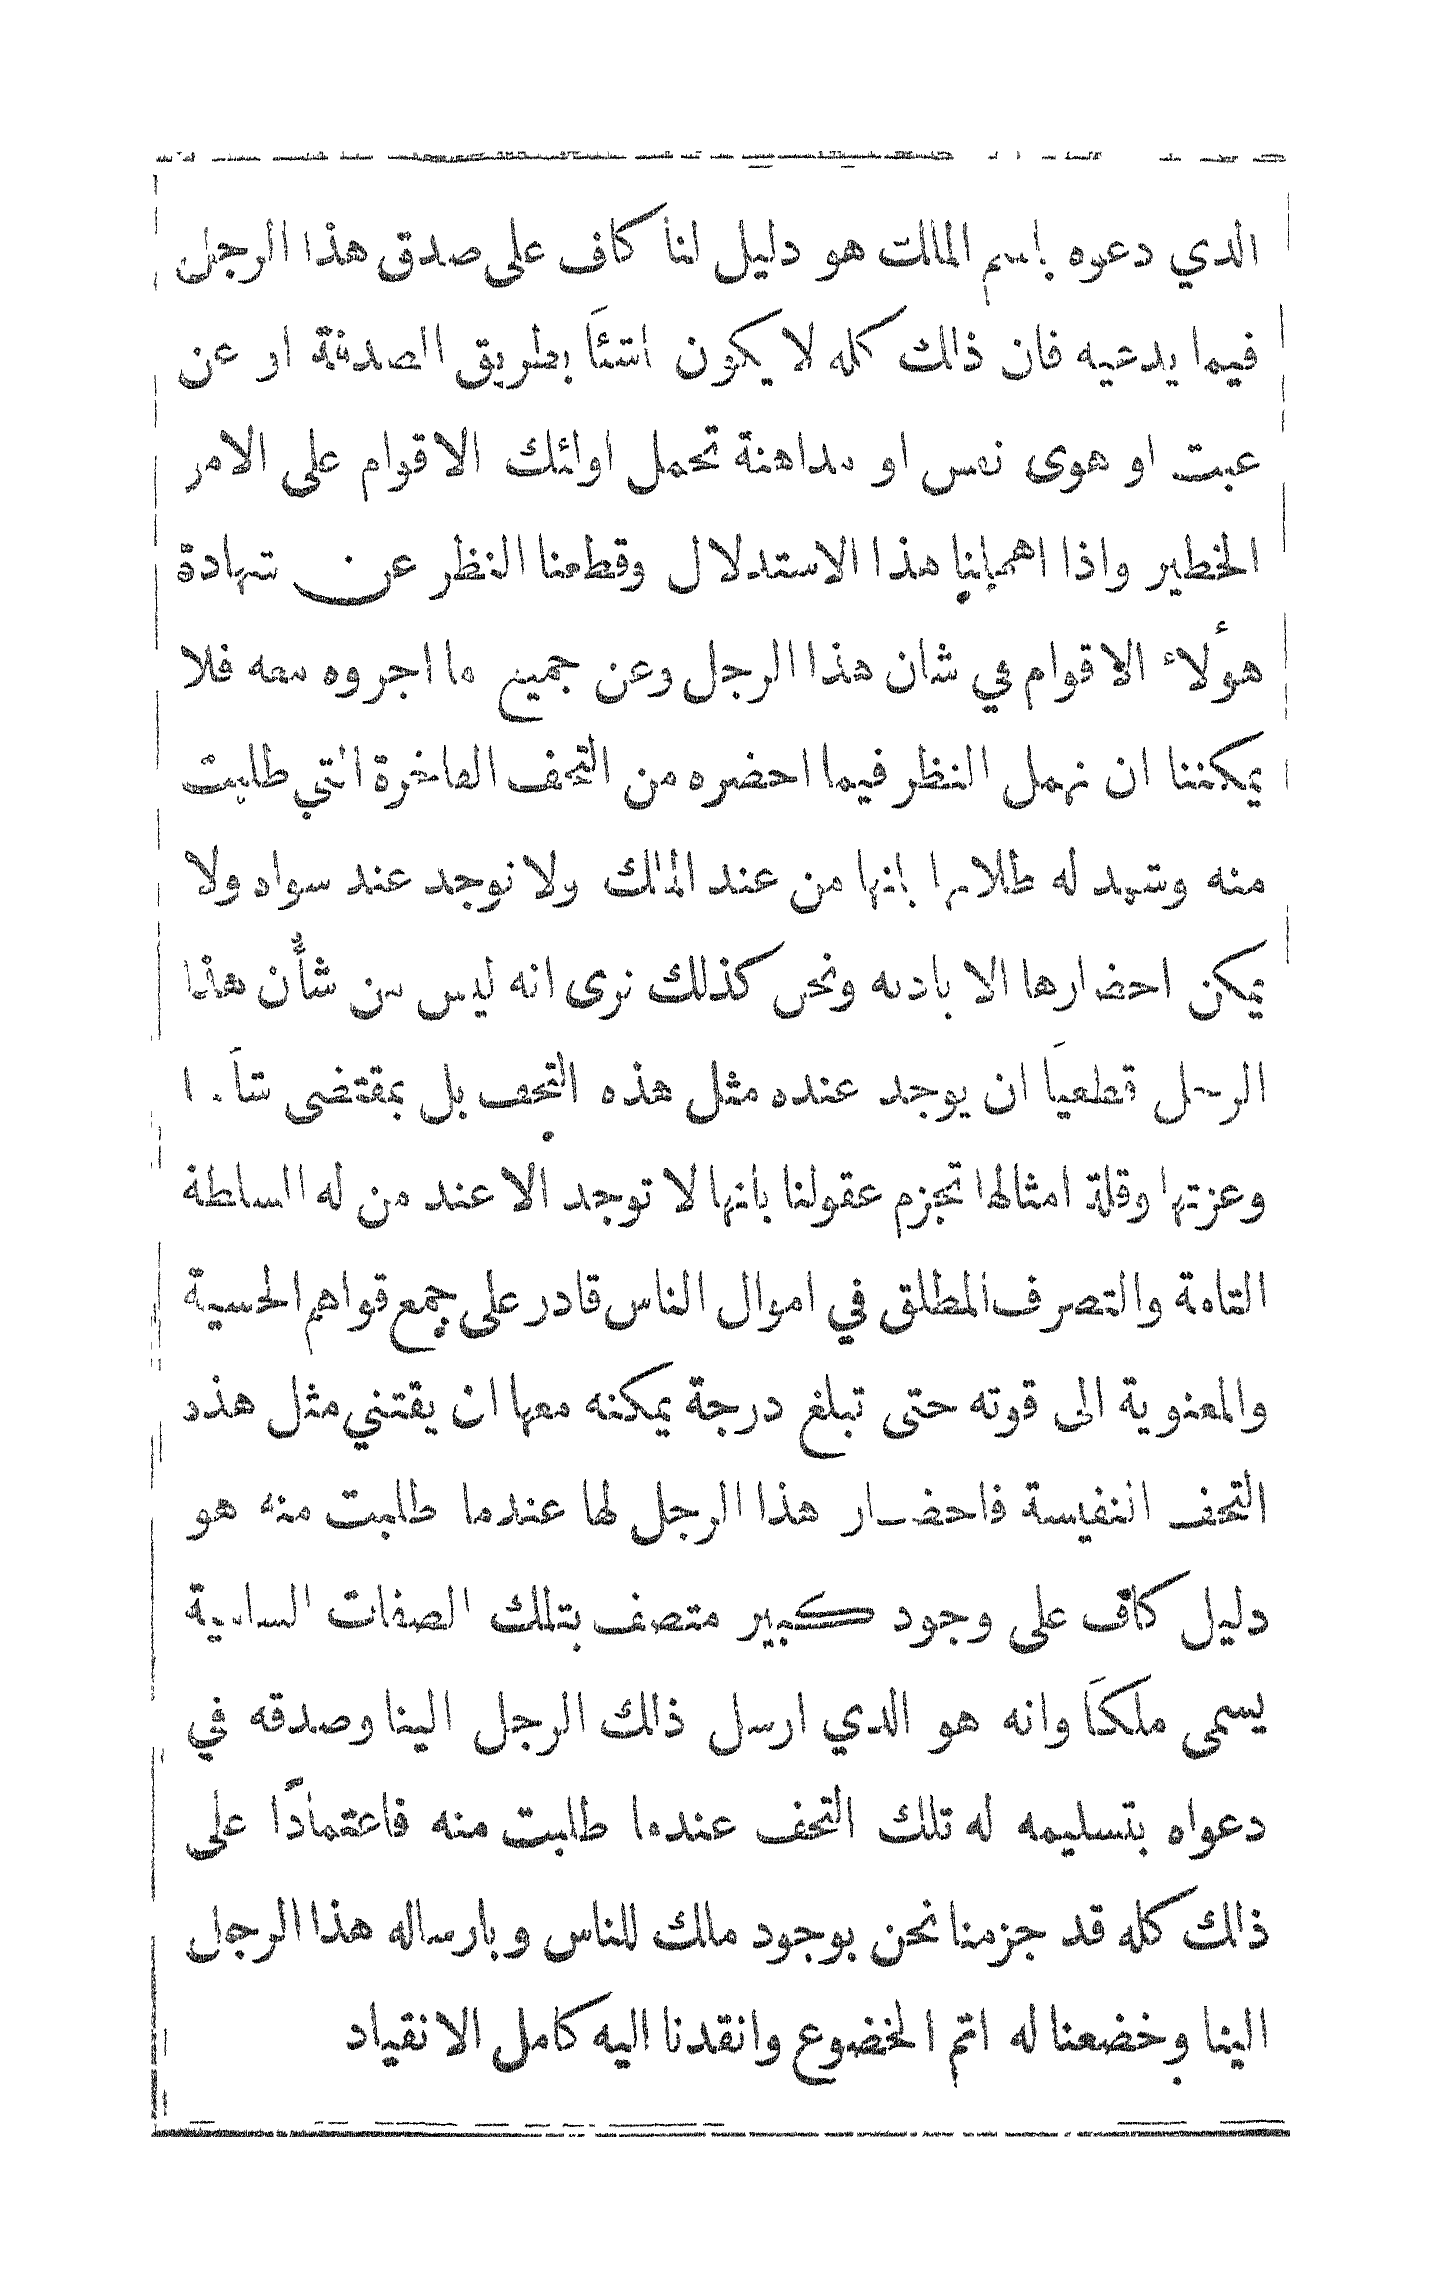 الذي دعوه باسم المالك هو دليل لنا كاف على صدق هذا الرجل
فيما يدعيه فان ذلك كله لا يكون ناشئاً بطريق الصدفة او عن
عبث او هوى نفس او مداهنة تحمل اولئك الاقوام على الامر
الخطير واذا اهملنا هذا الاستدلال وقطعنا النظر عن شهادة
هؤلاء الاقوام في شان هذا الرجل وعن جميع ما اجروه معه فلا
يمكننا ان نهمل النظر فيما احضره من التحف الفاخرة التي طلبت
منه وشهد له طلابها بانها من عند المالك ولا توجد عند سواه ولا
يمكن احضارها الا باذنه ونحن كذلك نرى انه ليس من شأن هذا
الرجل قطعياً ان يوجد عنده مثل هذه التحف بل بمقتضى
وعزتها وقلة امثالها تجزم عقولنا بانها لا توجد الا عند من له السلطة
التامة والتصرف المطلق في اموال الناس قادر على جمع قواهم الحسية
والمعنوية الى قوته حتى تبلغ درجة يمكنه معها ان يقتني مثل هذه
التحف النفيسة فاحضار هذا الرجل لها عندما طلبت منه هو
دليل كاف على وجود كبير متصف بتلك الصفات السامية
يسمى ملكاً وانه هو الذي ارسل ذلك الرجل الينا وصدقه في
دعواه بتسليمه له تلك التحف عندما طلبت منه فاعتماداً على
ذلك كله قد جزمنا نحن بوجود مالك للناس وبارساله هذا الرجل
الينا وخضعنا له اتم الخضوع وانقدنا اليه كامل الانقياد